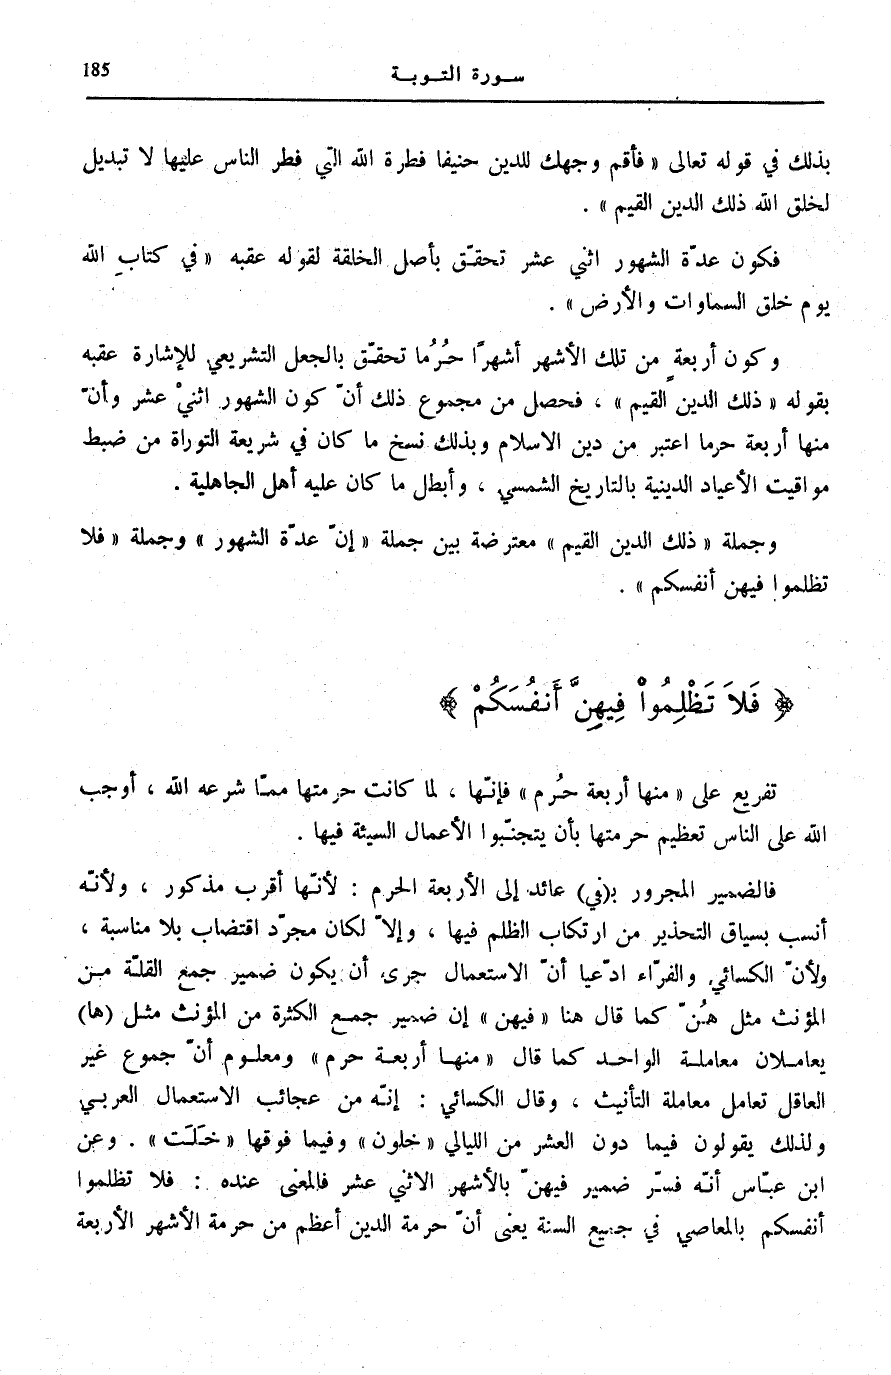 185
سورة التوبة
بذلك في قوله تعالى « فأقم وجهك للدين حنيفا فطرة الله التي فطر الناس عليها لا تبديل
لخلق الله ذلك الدين القيم » .
فكون عدّة الشهور اثني عشر تحقّق بأصل الخلقة لقوله عقبه « في كتاب الله
يوم خلق السماوات والأرض » .
وكون أربعةٍ من تلك الأشهر أشهرًا حُرُما تحقّق بالجعل التشريعي للإشارة عقبه
بقوله « ذلك الدين القيم » ، فحصل من مجموع ذلك أنّ كون الشهور اثنيْ عشر وأنّ
منها أربعة حرما اعتبر من دين الاسلام وبذلك نسخ ما كان في شريعة التوراة من ضبط
مواقيت الأعياد الدينية بالتاريخ الشمسي ، وأبطل ما كان عليه أهل الجاهلية .
وجملة « ذلك الدين القيم » معترضة بين جملة « إنّ عدّة الشهور » وجملة « فلا
تظلموا فيهن أنفسكم » .
﴿ فَلَا تَظْلِمُواْ فِيهِنَّ أَنفُسَكُمْ ﴾
تفريع على « منها أربعة حُرم » فإنّها ، لما كانت حرمتها ممّا شرعه الله ، أوجب
الله على الناس تعظيم حرمتها بأن يتجنّبوا الأعمال السيئة فيها .
فالضمير المجرور بـ(في) عائد إلى الأربعة الحرم : لأنّها أقرب مذكور ، ولأنّه
أنسب بسياق التحذير من ارتكاب الظلم فيها ، وإلاّ لكان مجرّد اقتضاب بلا مناسبة ،
ولأنّ الكسائي والفرّاء ادّعيا أنّ الاستعمال جرى أن يكون ضمير جمع القلّة من
المؤنث مثل هُنّ كما قال هنا « فيهن » إن ضمير جمع الكثرة من المؤنث مثل (ها)
يعاملان معاملة الواحد كما قال « منها أربعة حرم » ومعلوم أنّ جموع غير
العاقل تعامل معاملة التأنيث ، وقال الكسائي : إنّه من عجائب الاستعمال العربي
ولذلك يقولون فيما دون العشر من الليالي « خلون » وفيما فوقها « خَلَت » . وعن
ابن عبّاس أنّه فسّر ضمير فيهنّ بالأشهر الاثني عشر فالمعنى عنده : فلا تظلموا
أنفسكم بالمعاصي في جميع السنة يعنى أنّ حرمة الدين أعظم من حرمة الأشهر الأربعة